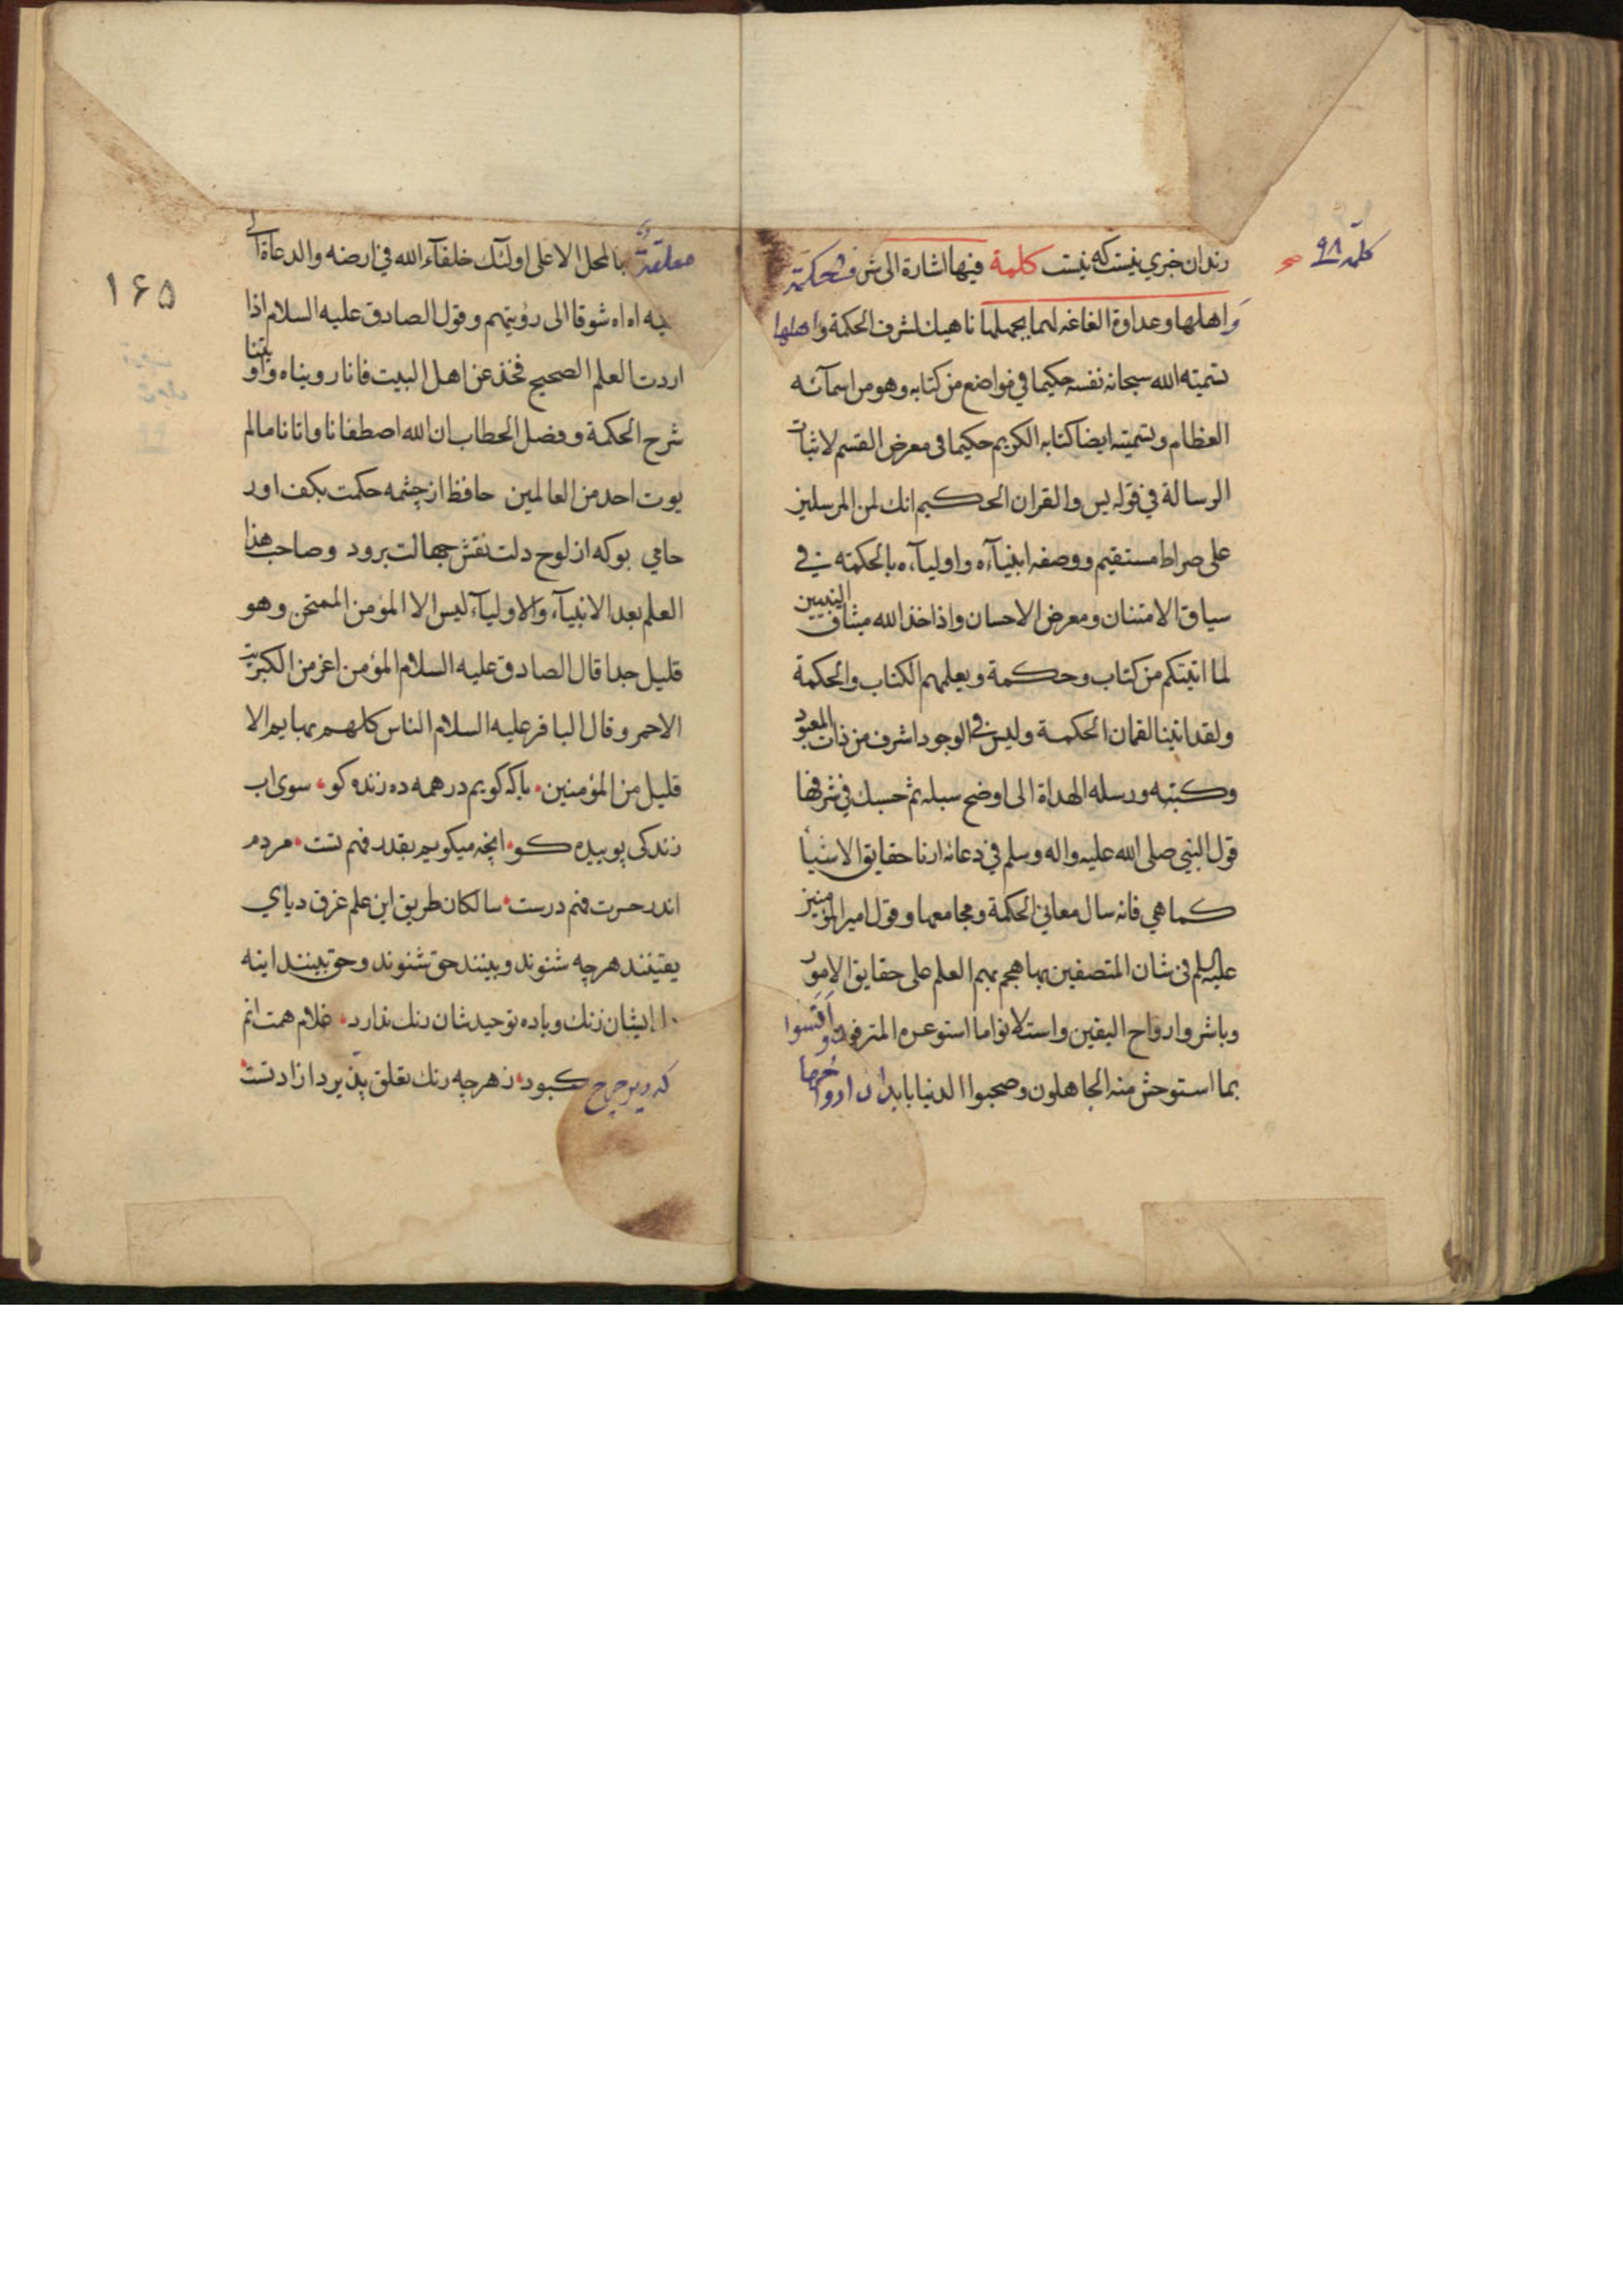 کلمه ۹۸
رندان خبری نیست که نیست کلمة فیها اشارة الی شرف الحکمة
وَاهلها وعداوة الفاغه لها بجهلها ناهیك لشرف الحکمة واهلها
تسمیته الله سبحانه نفسه حکیما فی مواضع من کتابه وهو من اسمآئه
العظام وتسمیته ایضا کتابه الکریم حکیما فی معرض القسم لاثبات
الرسالة فی قوله یس والقران الحکیم انك لمن المرسلین
علی صراط مستقیم ووصفه انبیآءه واولیآءه بالحکمته فی
سیاق الامتنان ومعرض الاحسان واذا خذ الله میثاق النبیین
لما اتیتکم من کتاب وحکمة ویعلمهم الکتاب والحکمة
ولقد اتینا لقمان الحکمة ولیس فی الوجود اشرف من ذات المعبود
وکتبه ورسله الهداة الی اوضح سبله ثم حسبك فی شرفها
قول النبی صلی الله علیه واله وسلم فی دعائه ارنا حقایق الاشیأ
کما هی فانه سال معانی الحکمة ومجامعها وقول امیر المؤمنین
علیه السلم فی شان المتصفین بها هجم بهم العلم علی حقایق الامور
وباشروا رواح الیقین واستلانوا ما استوعره المترفون وانسوا
بما استوحش منه الجاهلون وصحبوا الدنیا بابدان ارواحها
۱۶۵
معلقةٌ بالمحل الاعلی اولئك خلفآء الله فی ارضه والدعاة الی
دینه اه اه شوقا الی رؤیتهم وقول الصادق علیه السلام اذا
اردت العلم الصحیح فخذ عن اهل البیت فانا رویناه واوتینا
شرح الحکمة وفصل الخطاب ان الله اصطفانا واتانا ما لم
یوت احد من العالمین حافظ از چشمه حکمت بکف اور
جامی بوکه از لوح دلت نقش جهالت برود وصاحب هذا
العلم بعد الانبیآء والاولیآء لیس الا المؤمن الممتحن وهو
قلیل جدا قال الصادق علیه السلام المؤمن اعز من الکبریت
الاحمر وقال الباقر علیه السلام الناس کلهم بهایم الا
قلیل من المؤمنین باکه کویم در همه ده زنده کو سوی اب
زندکی پوینده کو انچه میکویم بقدر فهم تست مردم
اندر حسرت فهم درست سالکان طریق این علم غرق دریای
یقینند هرچه شنوند وبینند حق شنوند وحق بینند اینه
ایشان زنك وباده توحید شان رنك ندارد غلام همت انم
که زیر چرخ کبود ز هرچه رنك تعلق پذیرد ازادست